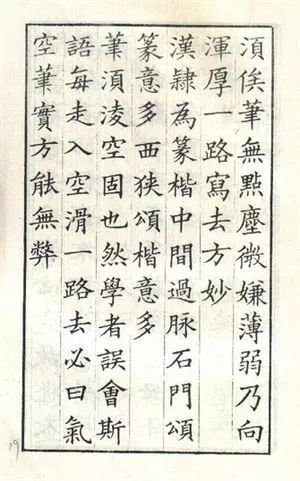 湏俟筆無點塵微嫌薄弱乃向
渾厚一路寫去方妙
漢隸為篆楷中間過脉石門頌
篆意多西狭頌楷意多
筆湏凌空固也然學者誤會斯
語每走入空滑一路去必曰氣
空筆實方能無弊
19